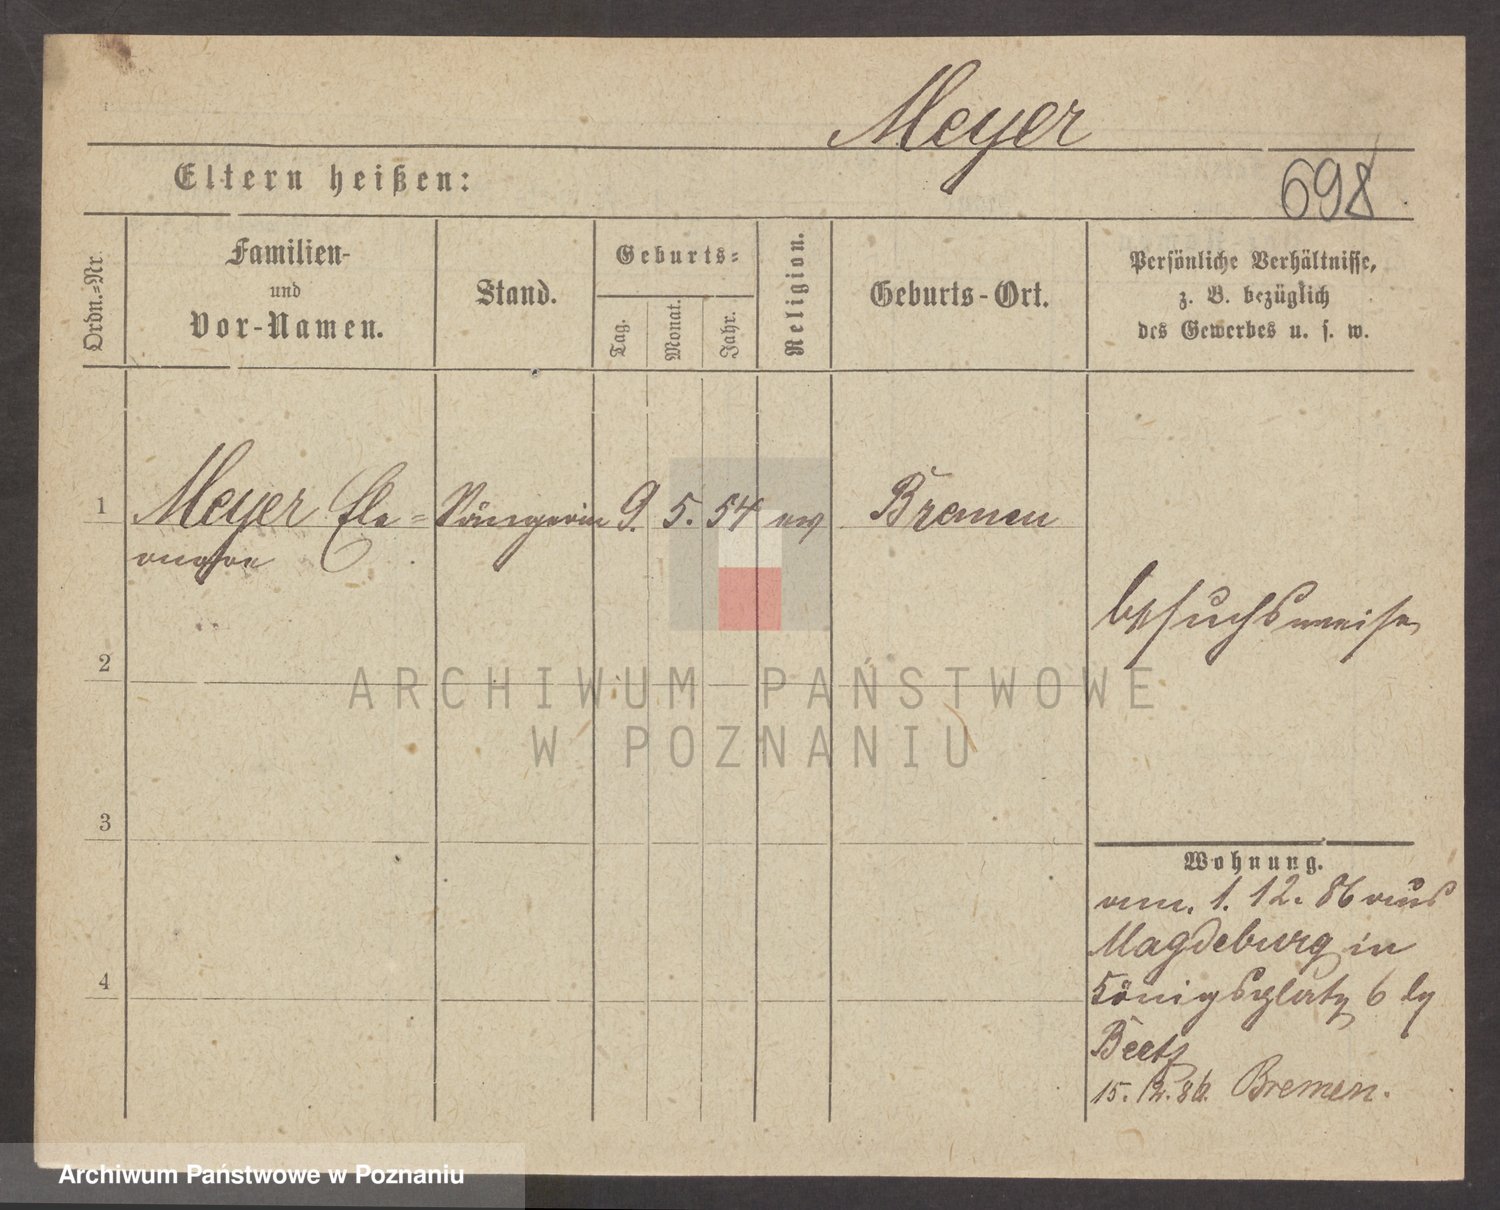 Meyer
Eltern heißen:
698
Ordn.-Nr.
Familien-
und
Vor-Namen.
Stand.
Geburts-
Tag.
Monat.
Jahr.
Religion.
Geburts-Ort.
Persönliche Verhältnisse,
z. B. bezüglich
des Gewerbes u. s. w.
1 Meyer Ele= Sängerin 9. 5. 54 ev Bremen
onore
besuchsweise
2
ARCHIWUM PAŃSTWOWE
W POZNANIU
3
Wohnung.
1. 12. 86 aus
Magdeburg in
4
Königsplatz 6
15. 12. 86. Bremen.
Archiwum Państwowe w Poznaniu